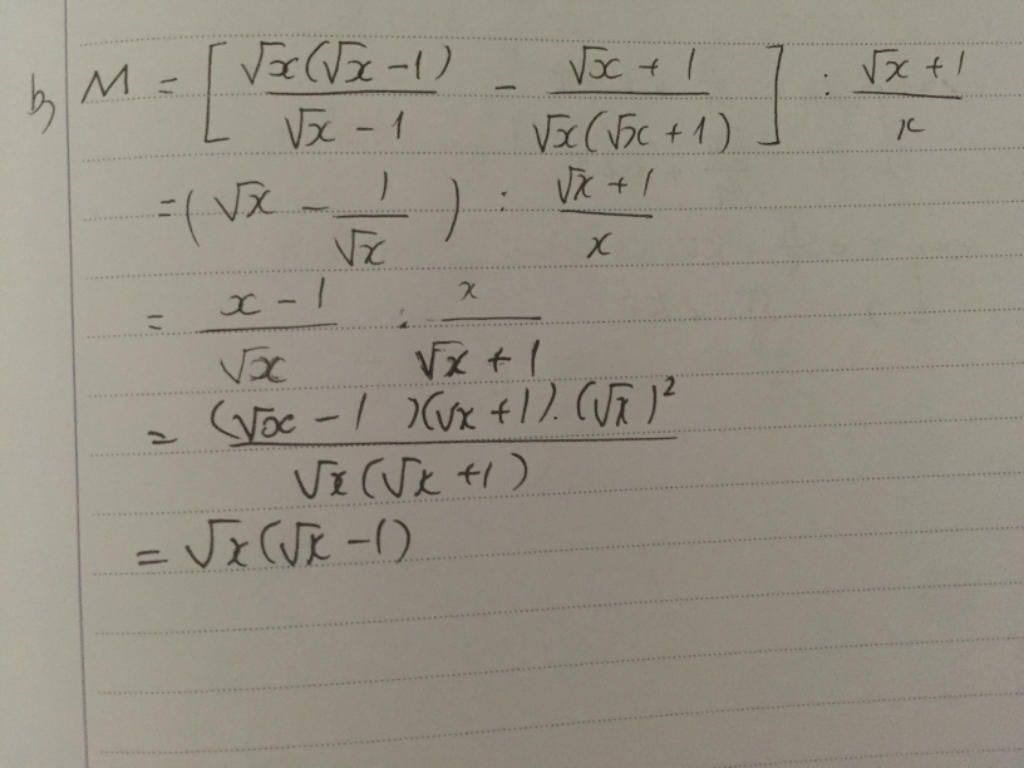 b) M = [ √x(√x − 1) / √x − 1 − √x + 1 / √x(√x + 1) ] : √x + 1 / x
= ( √x − 1 / √x ) : √x + 1 / x
= x − 1 / √x . x / √x + 1
= (√x − 1 )(√x + 1) . (√x )² / √x (√x + 1)
= √x (√x − 1)